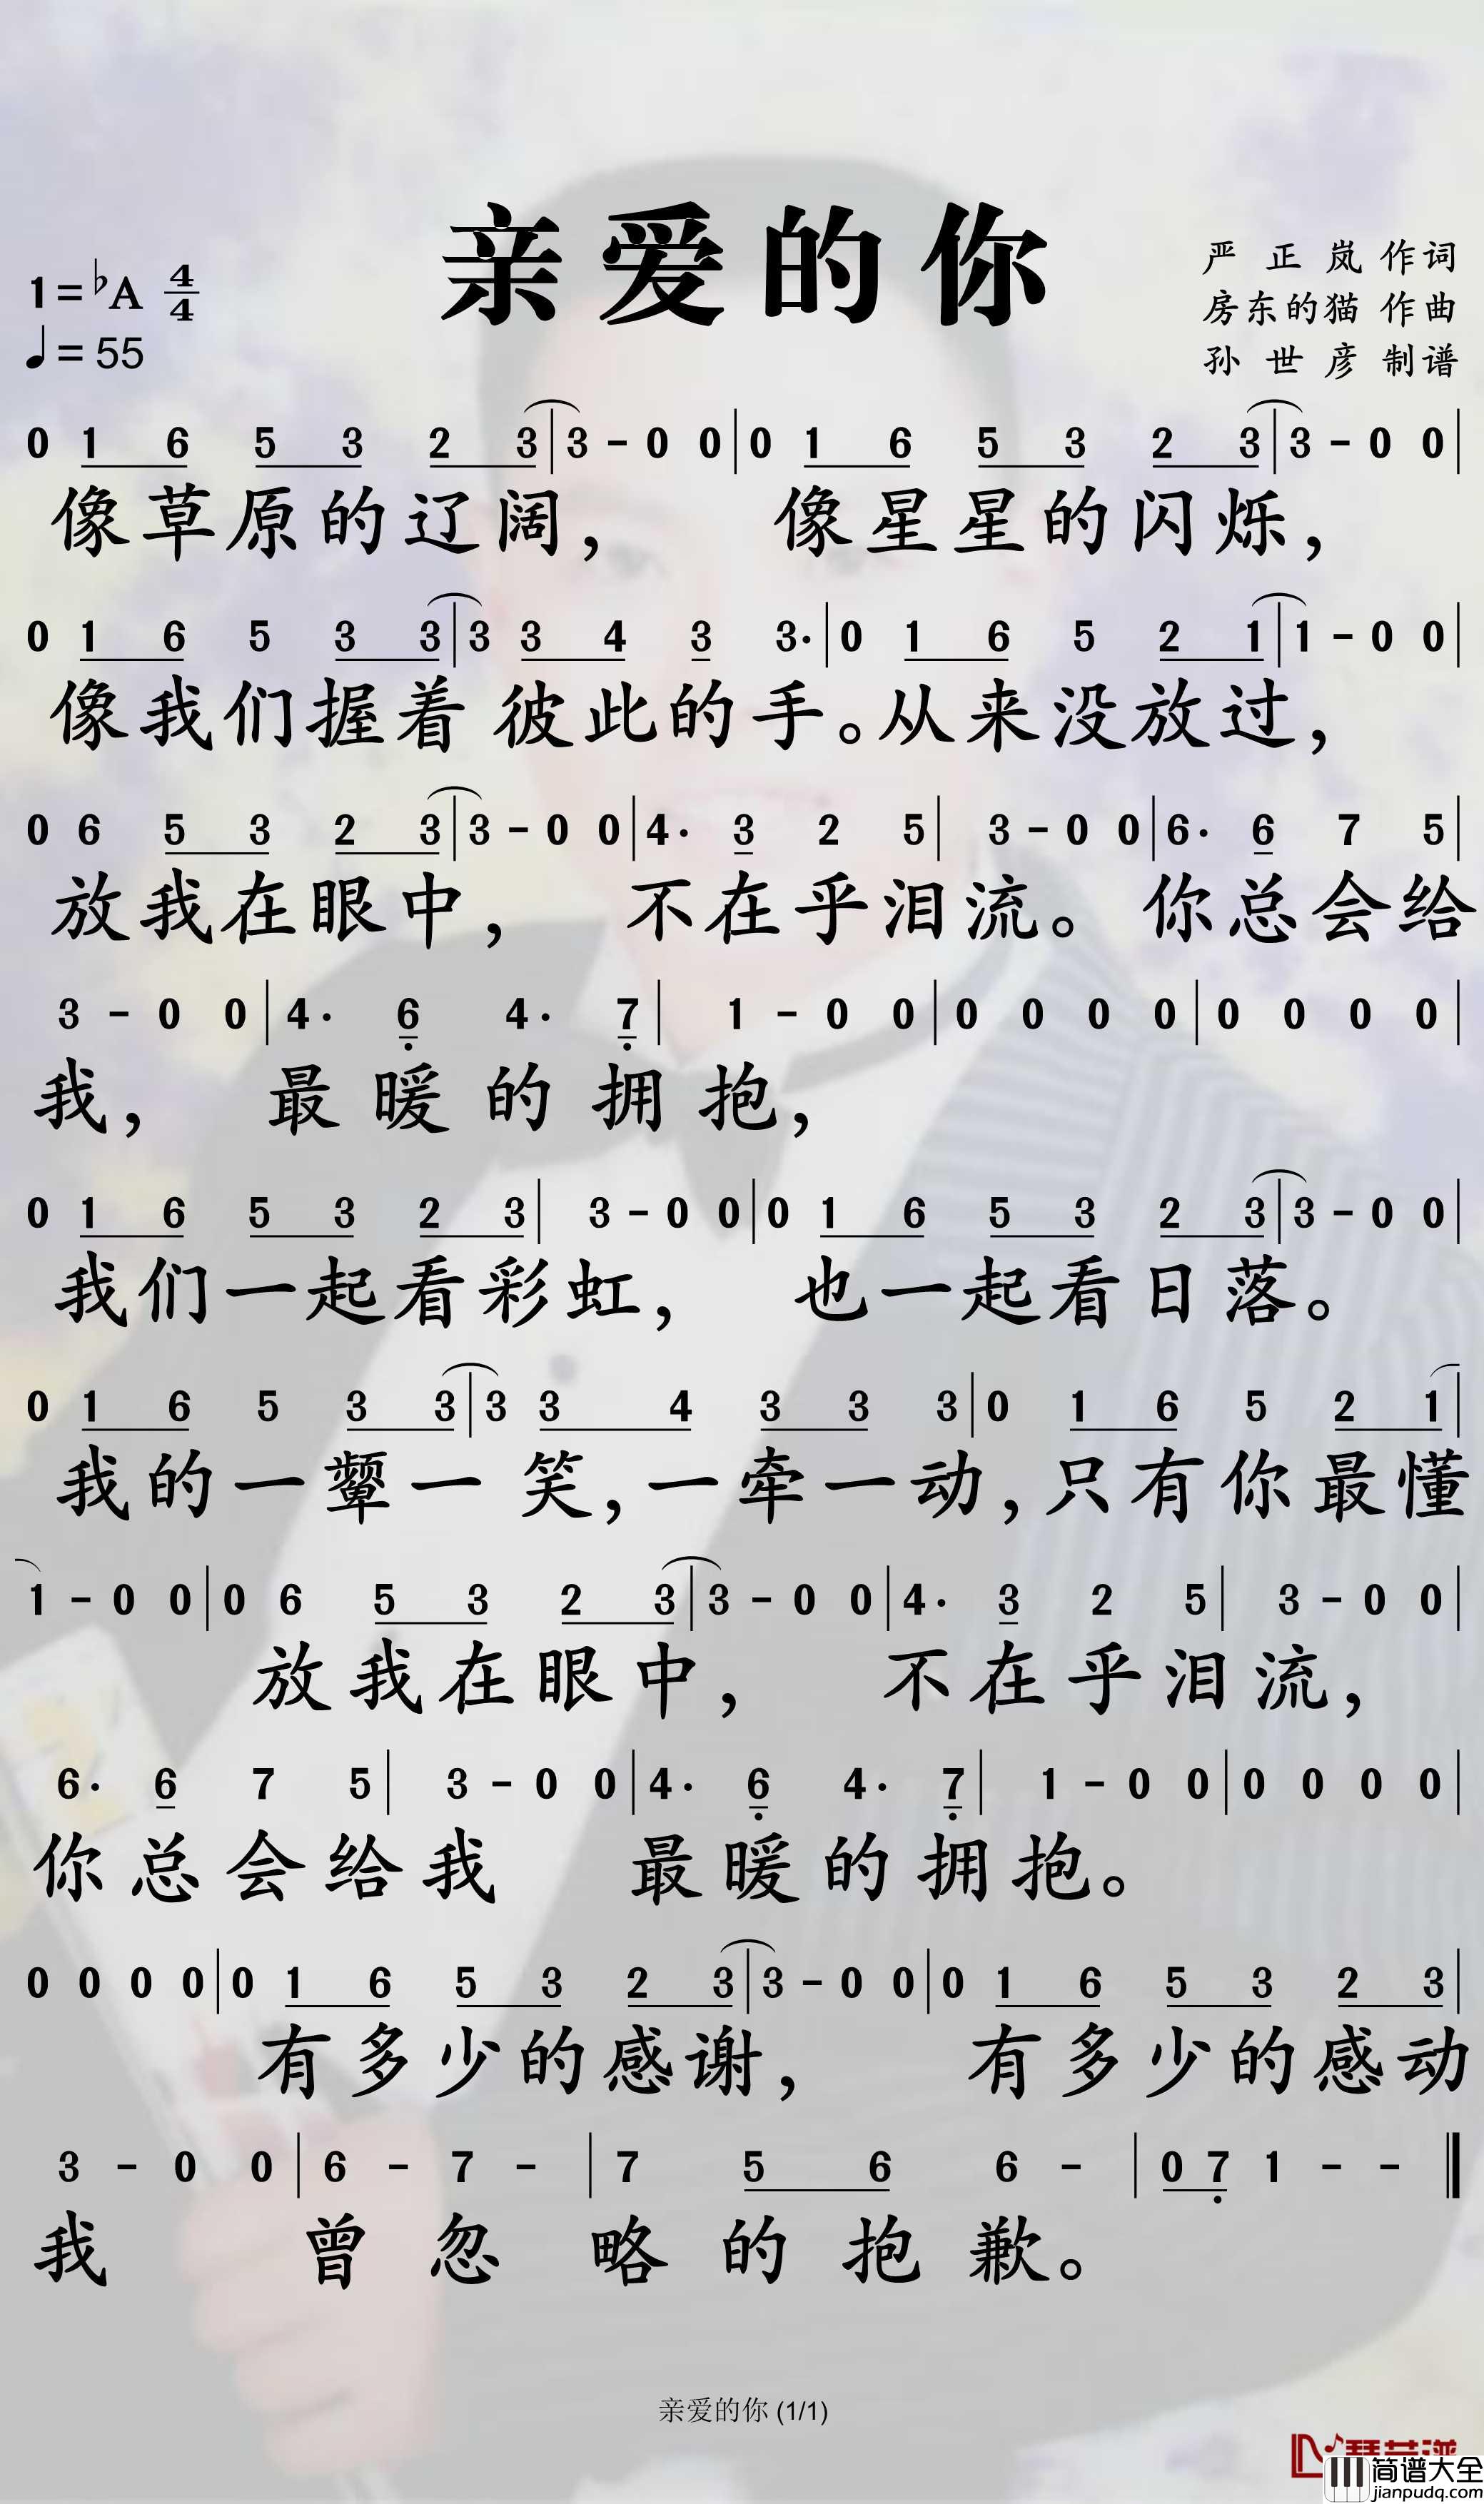 亲爱的你
1=♭A 4/4
♩=55
严正岚 作词
房东的猫 作曲
孙世彦 制谱
0 1 6 5 3 2 3 | 3 - 0 0 | 0 1 6 5 3 2 3 | 3 - 0 0 |
像草原的辽阔， 像星星的闪烁，
0 1 6 5 3 3 | 3 3 4 3 3· | 0 1 6 5 2 1 | 1 - 0 0 |
像我们握着彼此的手。从来没放过，
0 6 5 3 2 3 | 3 - 0 0 | 4· 3 2 5 | 3 - 0 0 | 6· 6 7 5 |
放我在眼中， 不在乎泪流。你总会给
3 - 0 0 | 4· 6 4· 7 | 1 - 0 0 | 0 0 0 0 | 0 0 0 0 |
我， 最暖的拥抱，
0 1 6 5 3 2 3 | 3 - 0 0 | 0 1 6 5 3 2 3 | 3 - 0 0 |
我们一起看彩虹， 也一起看日落。
0 1 6 5 3 3 | 3 3 4 3 3 3 | 0 1 6 5 2 1 |
我的一颦一笑，一牵一动，只有你最懂
1 - 0 0 | 0 6 5 3 2 3 | 3 - 0 0 | 4· 3 2 5 | 3 - 0 0 |
放我在眼中， 不在乎泪流，
6· 6 7 5 | 3 - 0 0 | 4· 6 4· 7 | 1 - 0 0 | 0 0 0 0 |
你总会给我 最暖的拥抱。
0 0 0 0 | 0 1 6 5 3 2 3 | 3 - 0 0 | 0 1 6 5 3 2 3 |
有多少的感谢， 有多少的感动
3 - 0 0 | 6 - 7 - | 7 5 6 6 - | 0 7 1 - - ‖
我 曾忽略的抱歉。
亲爱的你 (1/1)
简谱大全
jianpudq.com